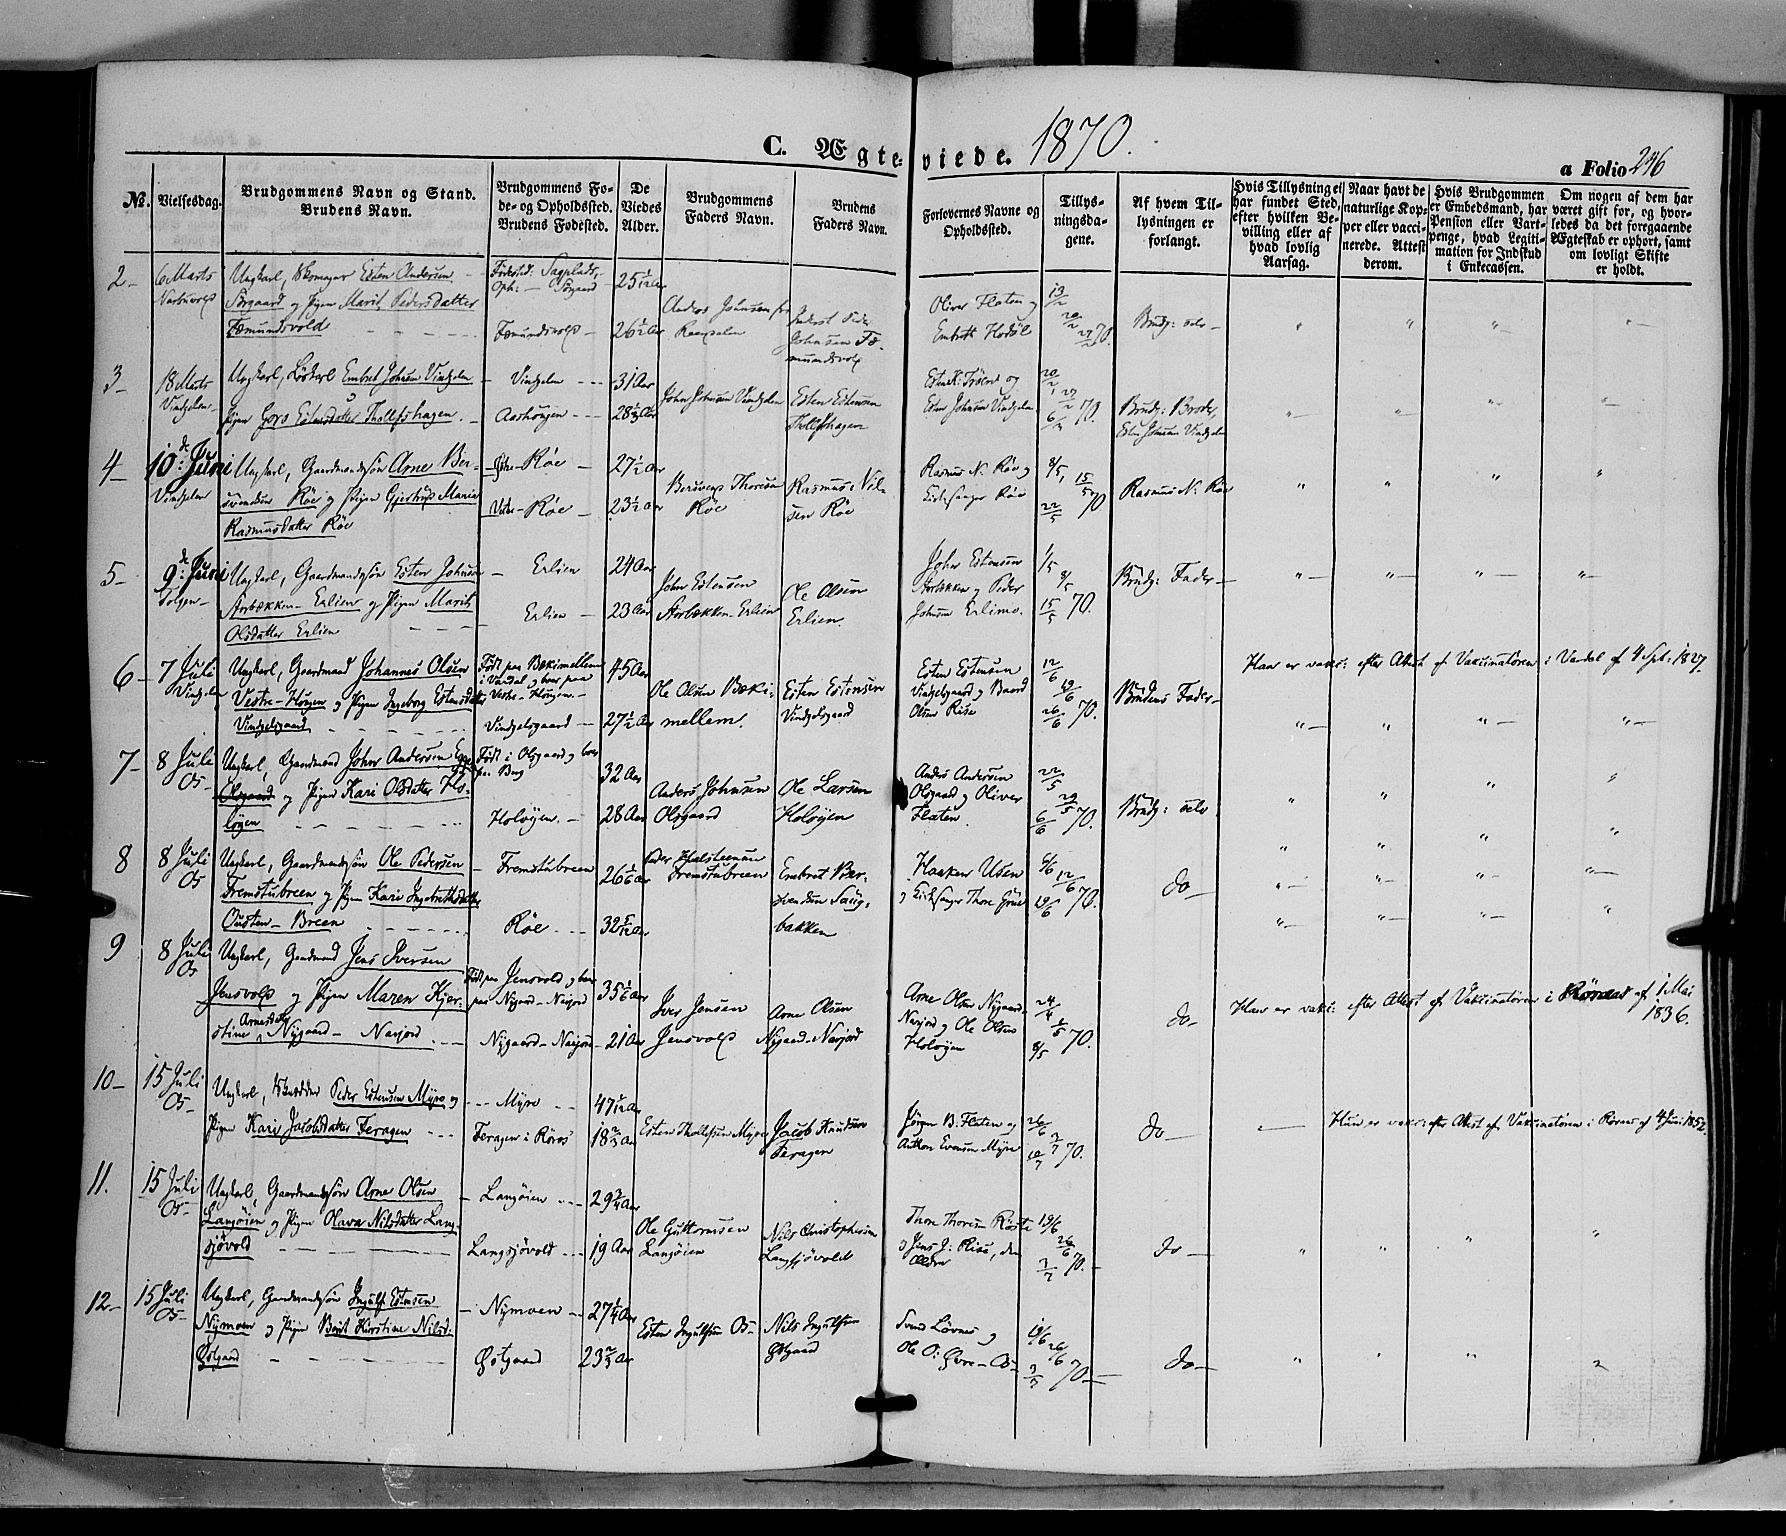 C. Ægteviede. 1870.
a Folio 246
№.
Vielsesdag.
Brudgommens Navn og Stand.
Brudens Navn.
Brudgommens Fø-
de- og Opholdssted.
Brudens Fødested.
De
Viedes
Alder.
Brudgommens
Faders Navn.
Brudens
Faders Navn.
Forlovernes Navne og
Opholdssted.
Tillys-
ningsda-
gene.
Af hvem Til-
lysningen er
forlangt.
Hvis Tillysning ei
har fundet Sted,
efter hvilken Be-
villing eller af
hvad lovlig
Aarsag.
Naar havt de
naturlige Kop-
per eller vacci-
nerede. Attest
derom.
Hvis Brudgommen
er Embedsmand, har
Pension eller Vart-
penge, hvad Legiti-
mation for Indskud
i Enkecassen.
Om nogen af dem har
været gift før, og hvor-
ledes da det foregaaende
Ægteskab er ophørt, samt
om lovligt Skifte
er holdt.
2-
6 Marts
Ungkarl, Skomager Esten Andersen
Sørgaard og Pigen Marit Pedersdatter
Fæmundsvold
Oph: - Sørgaard
Fæmundsvold -
25 1/12 Aar
26 1/2 Aar
Anders Johnsen
Johnsen Fæ-
mundsvold
Oliver Flaten og
Embrett Hodøl
20/2 27/2 70.
Brudg: selv -
3-
18 Marts
Vindgelen
Ungkarl, Løskarl Embret Johnsen Vindgelen
Pigen Goro Estensdatter Thollefshagen.
- Vindgelen
31 Aar
John Johnsen Vindgelen
Esten Estensen
Thollefshagen
Esten Johnsen Vindgelen
20/2 27/2 6/3 70.
Brudg: Broder,
Esten Johnsen Vindgelen
4-
10de Juni
Vindgelen
Ungkarl, Gaardmandssøn Arne Ber-
svendsen Røe og Pigen Gjertrud Maria
Rasmusdatter Røe
Øvre-Røe -
Vestre-Røe -
27 1/2 Aar
23 1/2 Aar
Bersvend Thoresen
Røe
Rasmus Nil-
sen Røe
Rasmus N. Røe og
Kirkesanger Røe
8/5, 15/5 22/5 70
Rasmus N: Røe
5-
9de Juni
Tolgen -
Ungkarl, Gaardmandssøn Esten Johnsen
Storbækken-Erlien og Pigen Marit
Olsdatter Erlien
Erlien
Erlien -
24 Aar
23 Aar
John Estensen
Storbækken-Erlien
Ole Olsen
Erlien.
John Estensen
Storbækken og Peder
Johnsen Erlimo.
1/5 8/5 15/5 70.
Brudg: Fader -
6-
7 Juli
Vindgelen
Ungkarl, Gaardmand Johannes Olsen
Vestre-Hougen og Pigen Ingeborg Estensdatter
Vindgelsgaard
Født paa Bækimellem
i Vardal og boer paa
Vestre-Hougen.-
Vindgelsgaard -
45 Aar
27 1/2 Aar
Ole Olsen Bæki-
mellem.
Esten Estensen
Vindgelsgaard
Esten Estensen
Vindgelsgaard og Baard
Olsen Risa
12/6 19/6 26/6 70.
Brudens Fader -
Han er vakc: efter Attest af Vakcinatøren i Vardal af 4 Sept: 1827.
7-
8 Juli
Os-
Ungkarl, Gaardmand John Andersen
Olsgaard og Pigen Kari Olsdatter Ho-
løyen
Født i Olsgaard og boer
paa Berg
Holøyen.-
32 Aar
28 Aar
Anders Johnsen
Olsgaard
Ole Larsen
Holøyen
Anders Andersen
Olsgaard og Oliver
Flaten
22/5 29/5 6/6 70.
Brudg: selv.
8
8 Juli
Os
Ungkarl, Gaardmandssøn Ole Pedersen
Fremstubreen og Pigen Kari Ingebretsdatter
Ousten-Breen
- Fremstubreen
Røe
26 1/6 Aar
32 5/12 Aar
Peder Halsteensen
Fremstubreen
Embret Ber-
svendsen Saug-
bakken
Haaken Usen
og Kirkesanger Thore Grue
5/6 12/6 19/6 70.
do-
9
8 Juli
Os
Ungkarl, Gaardmand Jens Iversen
Jensvold og Pigen Maren Kjer-
stine Arnesdatter Nygaard-Narjord
Født paa Jensvold og boer
paa Nygaard-Narjord
Nygaard-Narjord
35 1/6 Aar
21 Aar
Iver Jensen
Jensvold
Arne Olsen
Nygaard-Narjord
Arne Olsen Nygaard-
Narjord og Ole Olsen
Holøyen
24/4 1/5 8/5 70.
do-
Han er vakc: efter Attest af Vakcinatøren i Røraas af 1 Mai
1836.
10-
15 Juli
Os-
Ungkarl, Skrædder Peder Estensen Myre og
Pigen Kari Jacobsdatter Feragen
Myre
Feragen i Røros
47 1/12 Aar
18 2/3 Aar
Esten Thollefsen Myre
Jacob Knudsen
Feragen
Jørgen B: Flaten og
Anton Evensen Myre
26/6 3/7 10/7 70.
do-
Hun er vakc: efter Attest af Vakcinatøren i Røraas af 4 Juni 1852.
11.
15 Juli
Os-
Ungkarl, Gaardmandssøn Arne Olsen
Langøien og Pigen Olava Nilsdatter Lang-
sjøvold
- Langøien
Langsjøvold
29 3/4 Aar
19 Aar
Ole Guttormsen
Langøien
Nils Christophersen
Langsjøvold
Thore Thoresen Røste
og Jens J: Risa, den
Ældre
19/6 26/6 3/7 70.-
do-
12-
15 Juli
Os-
Ungkarl, Gaardmandssøn Ingulf Estensen
Nymoen og Pigen Berit Kirstine Nilsd:
Østgaard
- Nymoen
Østgaard
27 1/4 Aar
23 2/3 Aar
Esten Ingulfsen Os-
Nils Ingulfsen
Østgaard
Svend Løvnes og
Ole O: Øvre-Os-
19/6 26/6 3/7 70-
do-